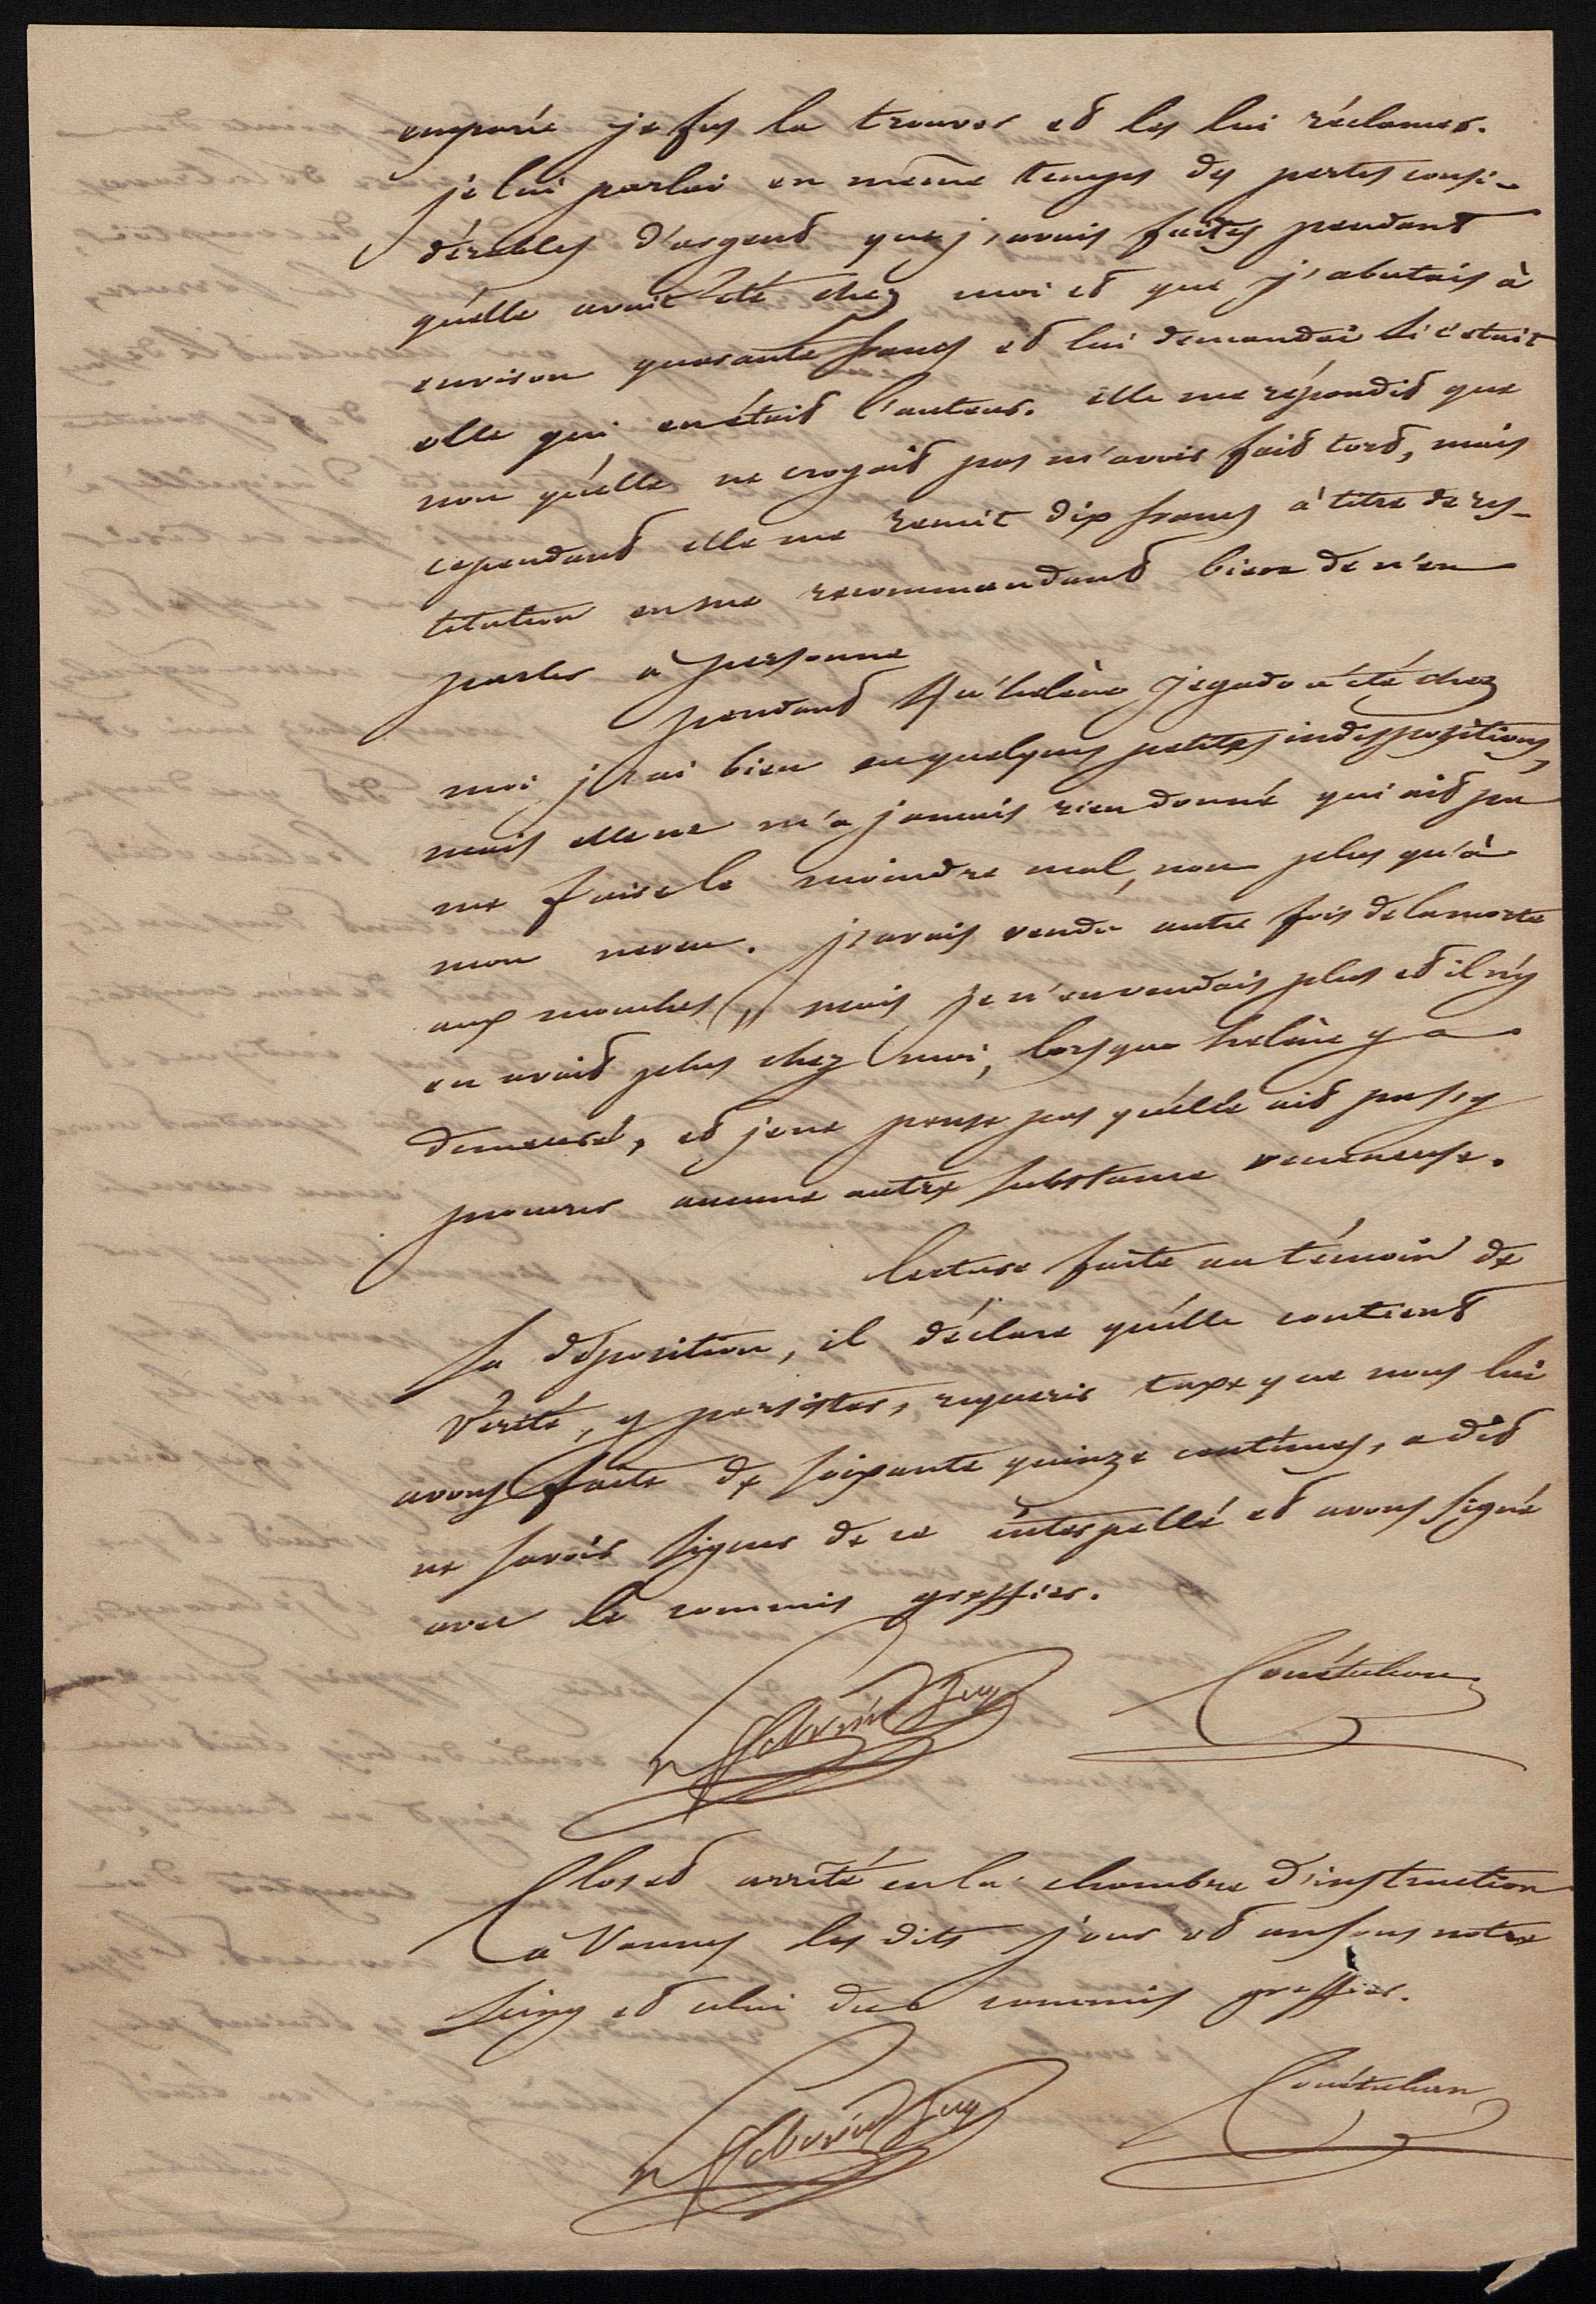 emparée je fus la trouver et les lui réclamer.
je lui parlai en même temps des pertes consi-
dérables d'argent que j'avais faites pendant
qu'elle avait été chez moi et que j'abutais à
environ quarante francs et lui demandai si c'était
elle qui en était l'auteur. elle me répondit que
non qu'elle ne croyait pas m'avoir fait tord, mais
cependant elle me remit dix francs à titre de res-
titution en me recommandant bien de n'en
parler à personne
pendant qu'helène jegado a été chez
moi j'ai bien eu quelques petites indispositions,
mais elle ne m'a jamais rien donné qui ait pu
me faire le moindre mal, non plus qu'à
mon neveu. j'avais vendu autre fois de la morte
aux mouches, mais je n'en vendais plus et il n'y
en avait plus chez moi, lorsque helène y a
demeuré, et je ne pense pas qu'elle ait pu s'y
procurer aucune autre substance veneneuse.
lecture faite au témoin de
sa déposition, il déclare qu'elle contient
Verité, y persister, requeris taxe que nous lui
avons faite de soixante quinze centimes, a dit
ne savoir signer de ce interpellé et avons signé
avec le commis greffier.
Clos et arrêté en la chambre d'instruction
à Vannes les dits jour et an sous notre
seing et celui du commis greffier.